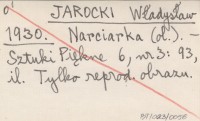 JAROCKI Władysław
1930. Narciarka (ol.). –
Sztuki Piękne 6, nr 3: 93,
il. Tylko reprod. obrazu.